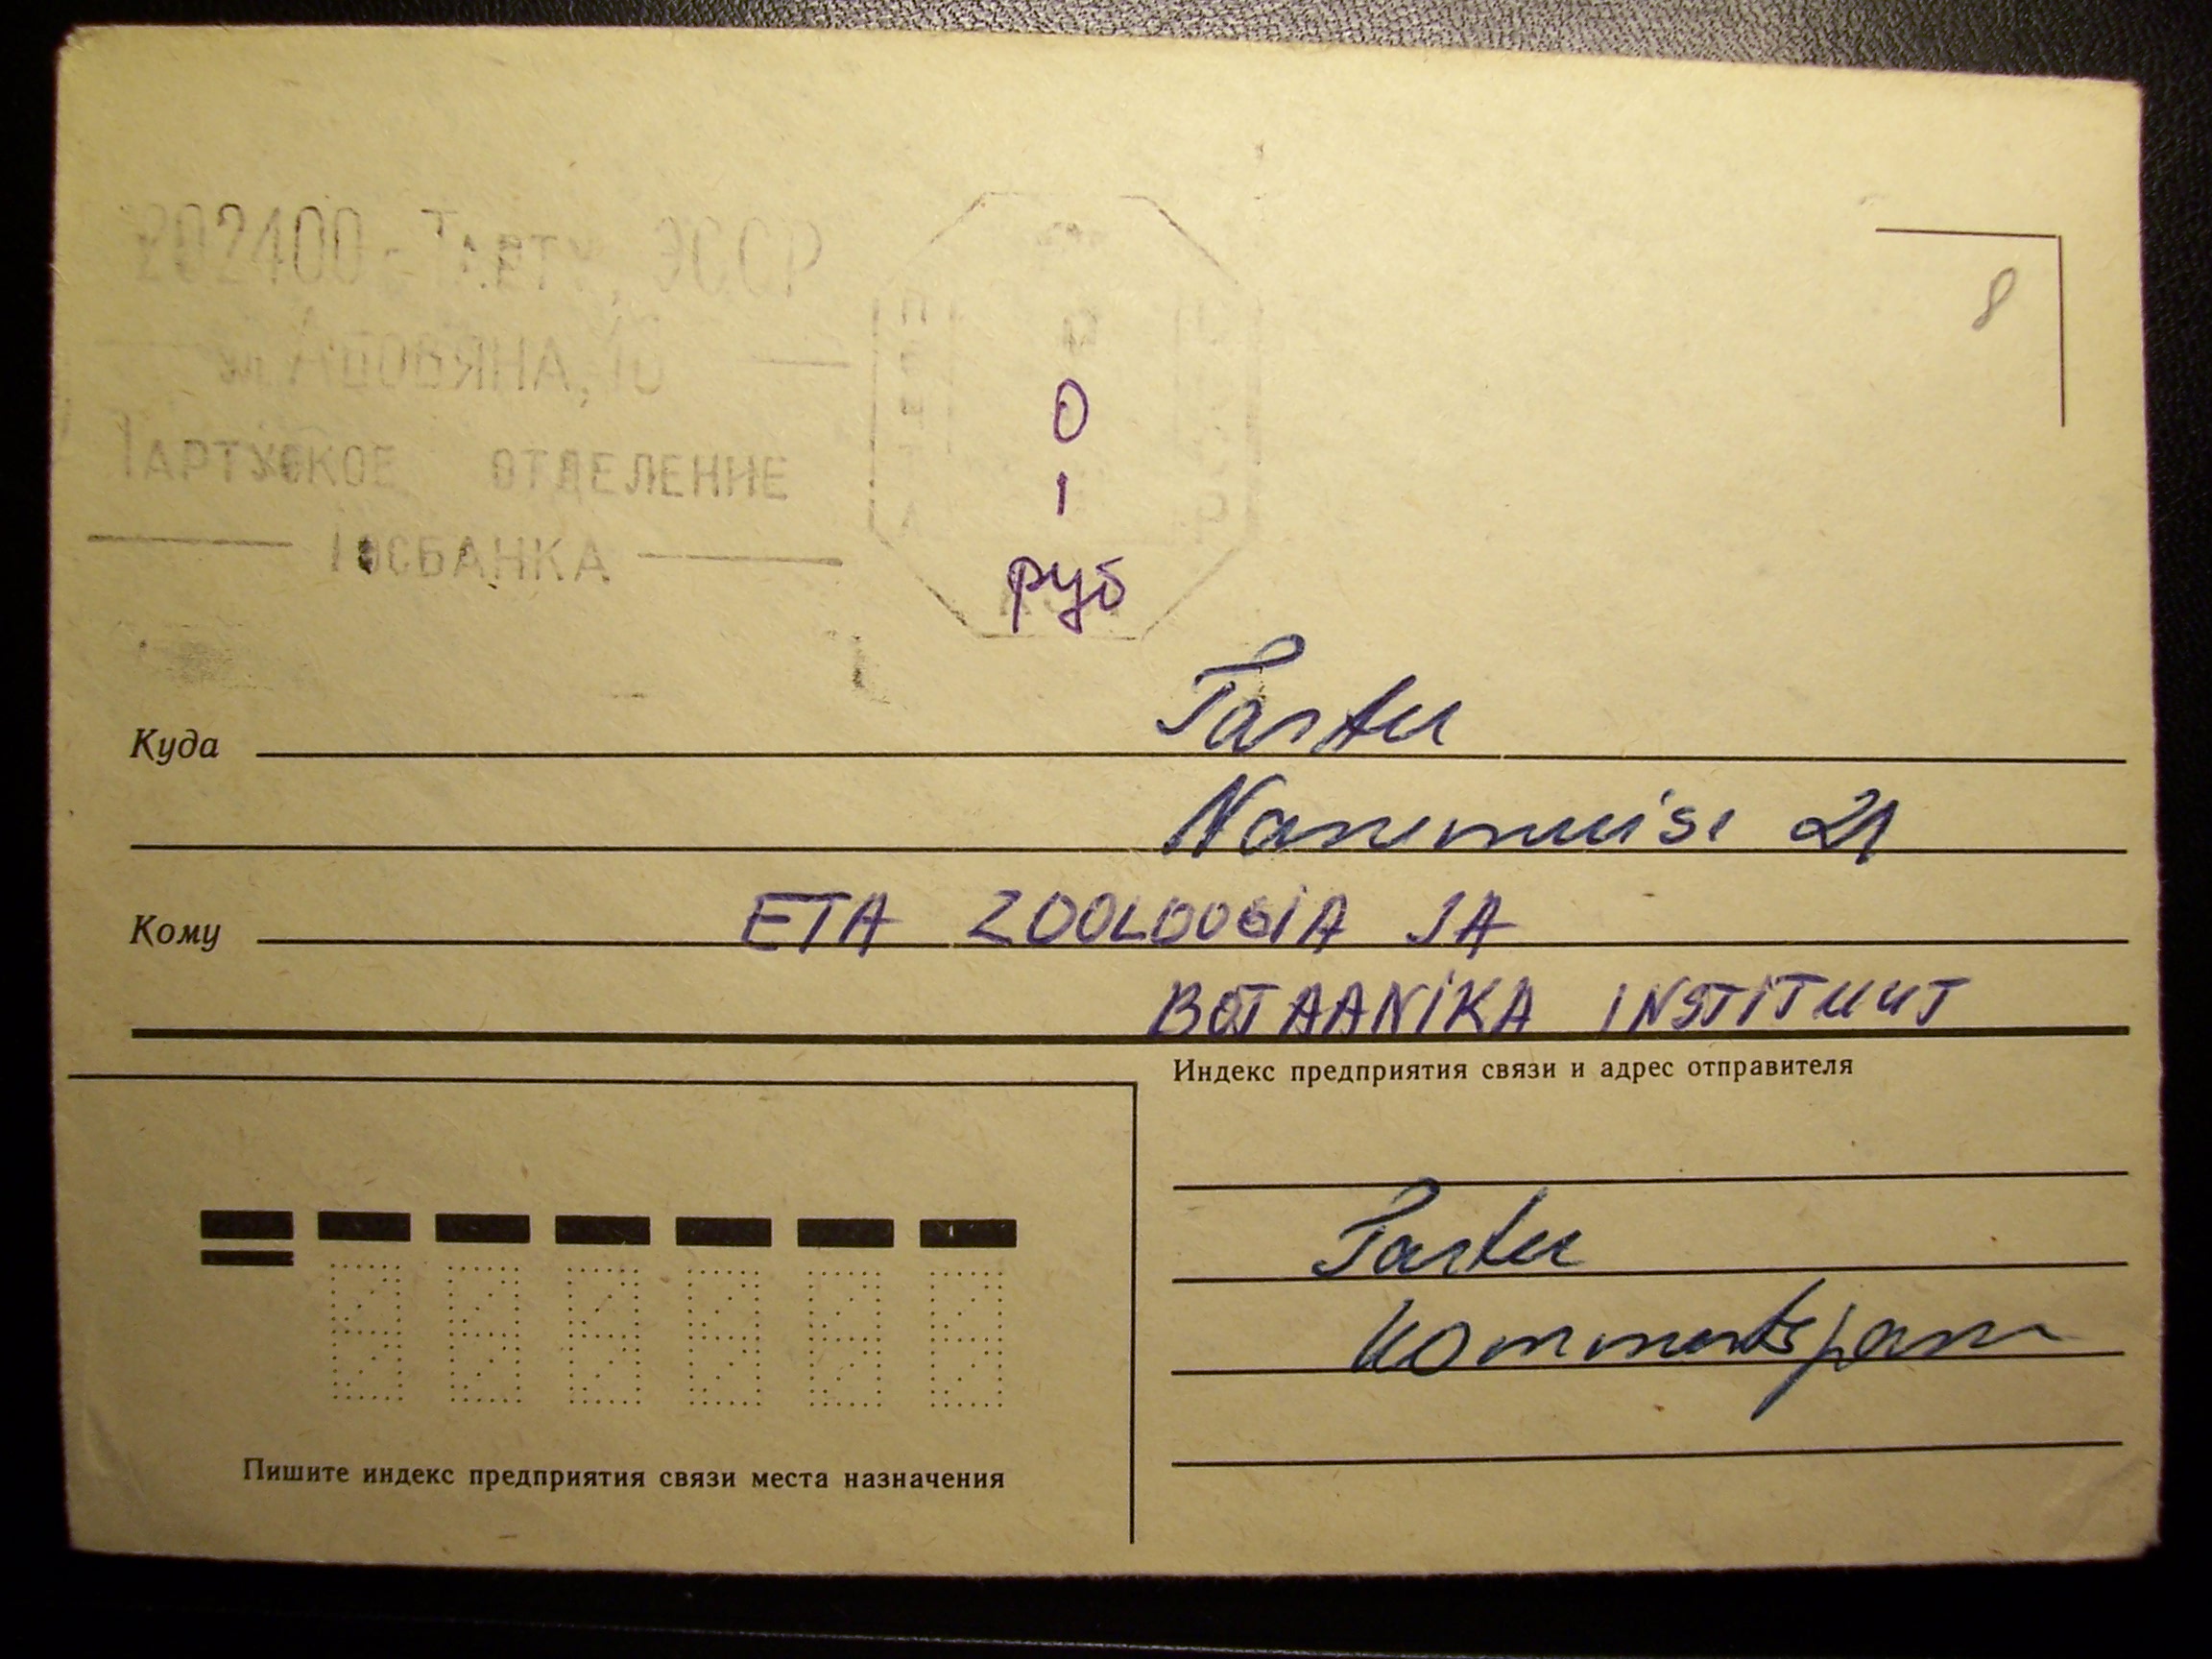 202400 - ТАРТУ, ЭССР
ТАРТУСКОЕ ОТДЕЛЕНИЕ
ГОСБАНКА
ПОЧТА
0
1
руб
8
Tartu
Куда
Vanemuise 21
Кому ETA ZOOLOOGIA JA
BOTAANIKA INSTITUUT
Индекс предприятия связи и адрес отправителя
Tartu
Kommertspank
Пишите индекс предприятия связи места назначения